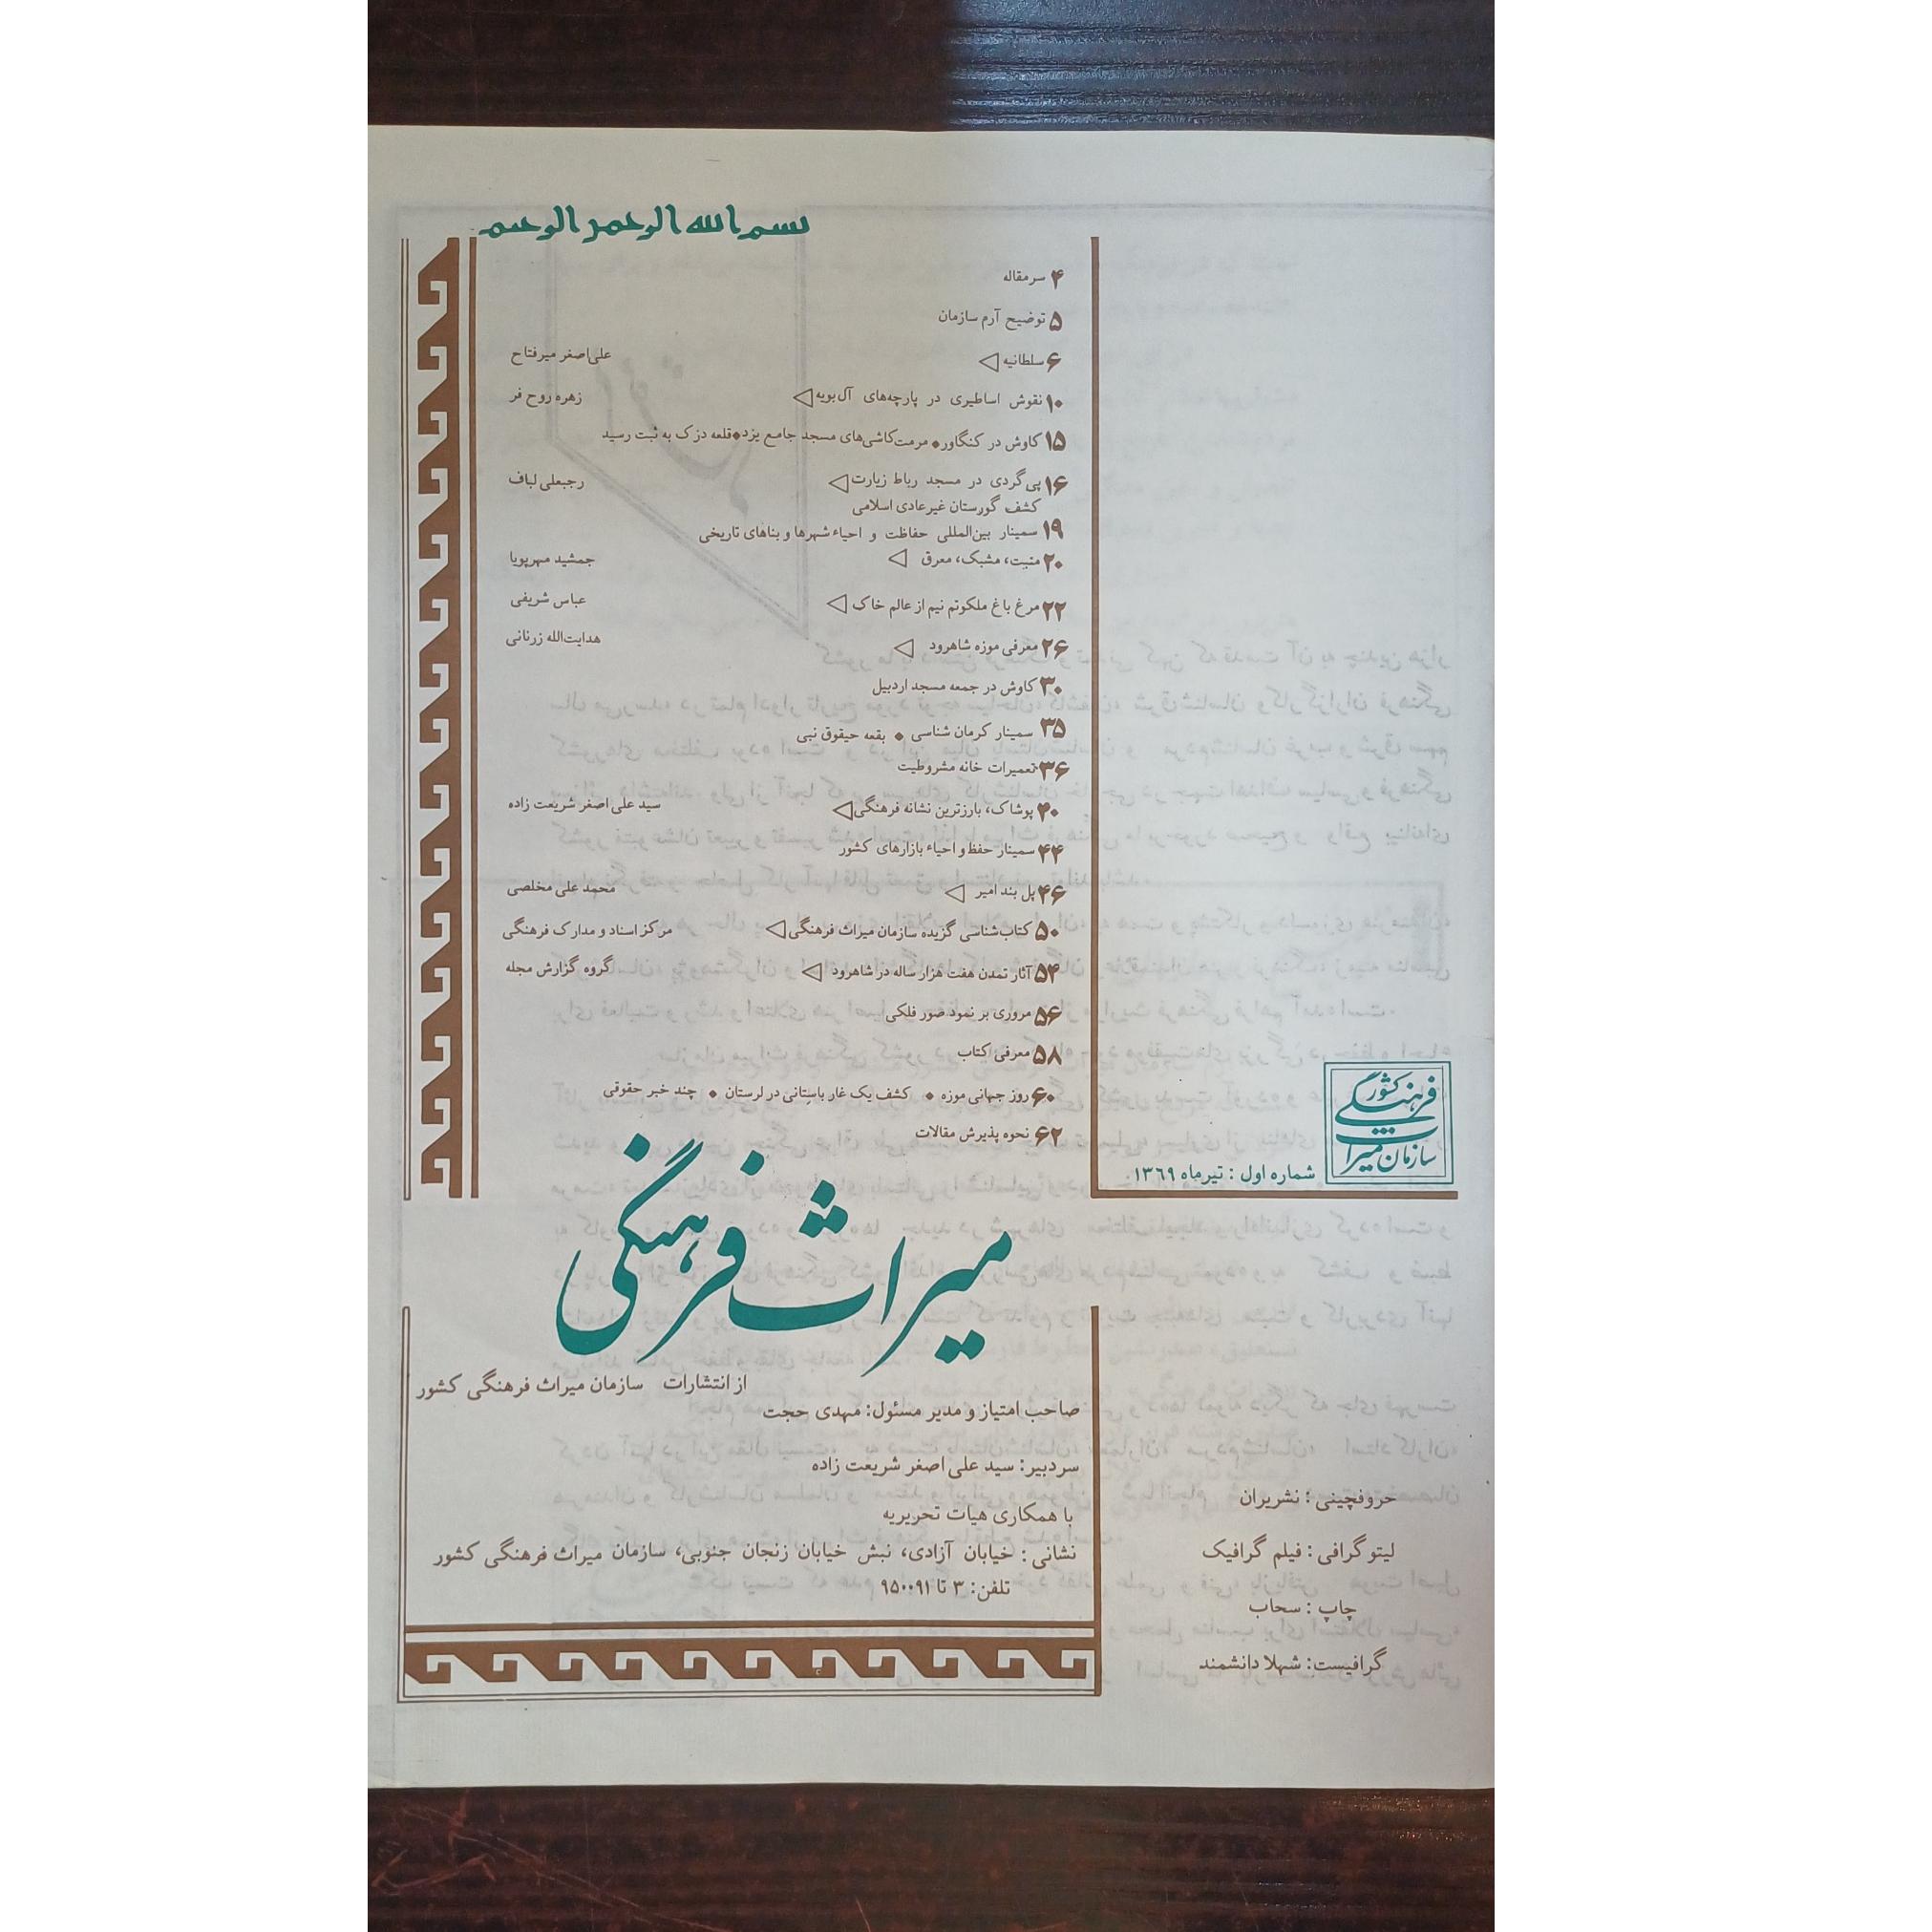 بسم الله الرحمن الرحیم
۴ سرمقاله
۵ توضیح آرم سازمان
۶ سلطانیه علی‌اصغر میرفتاح
۱۰ نقوش اساطیری در پارچه‌های آل‌بویه زهره روح فر
۱۵ کاوش در کنگاور • مرمت کاشی‌های مسجد جامع یزد • قلعه دزک به ثبت رسید
۱۶ پی‌گردی در مسجد رباط زیارت رجبعلی لباف
کشف گورستان غیرعادی اسلامی
۱۹ سمینار بین‌المللی حفاظت و احیاء شهرها و بناهای تاریخی
۲۰ منبت، مشبک، معرق جمشید مهرپویا
۲۲ مرغ باغ ملکوتم نیم از عالم خاک عباس شریفی
۲۶ معرفی موزه شاهرود هدایت‌الله زرنانی
۳۰ کاوش در جمعه مسجد اردبیل
۳۵ سمینار کرمان شناسی • بقعه حیقوق نبی
۳۶ تعمیرات خانه مشروطیت
۴۰ پوشاک، بارزترین نشانه فرهنگی سید علی اصغر شریعت زاده
۴۴ سمینار حفظ و احیاء بازارهای کشور
۴۶ پل بند امیر محمد علی مخلصی
۵۰ کتاب‌شناسی گزیده سازمان میراث فرهنگی مرکز اسناد و مدارک فرهنگی
۵۴ آثار تمدن هفت هزار ساله در شاهرود گروه گزارش مجله
۵۶ مروری بر نمود صور فلکی
۵۸ معرفی کتاب
۶۰ روز جهانی موزه • کشف یک غار باستانی در لرستان • چند خبر حقوقی
۶۲ نحوه پذیرش مقالات
سازمان میراث فرهنگی کشور
شماره اول : تیرماه ۱۳۶۹
میراث فرهنگی
از انتشارات سازمان میراث فرهنگی کشور
صاحب امتیاز و مدیر مسئول: مهدی حجت
سردبیر: سید علی اصغر شریعت زاده
با همکاری هیات تحریریه
نشانی : خیابان آزادی، نبش خیابان زنجان جنوبی، سازمان میراث فرهنگی کشور
تلفن: ۳ تا ۹۵۰۰۹۱
حروفچینی : نشریران
لیتوگرافی : فیلم گرافیک
چاپ : سحاب
گرافیست: شهلا دانشمند